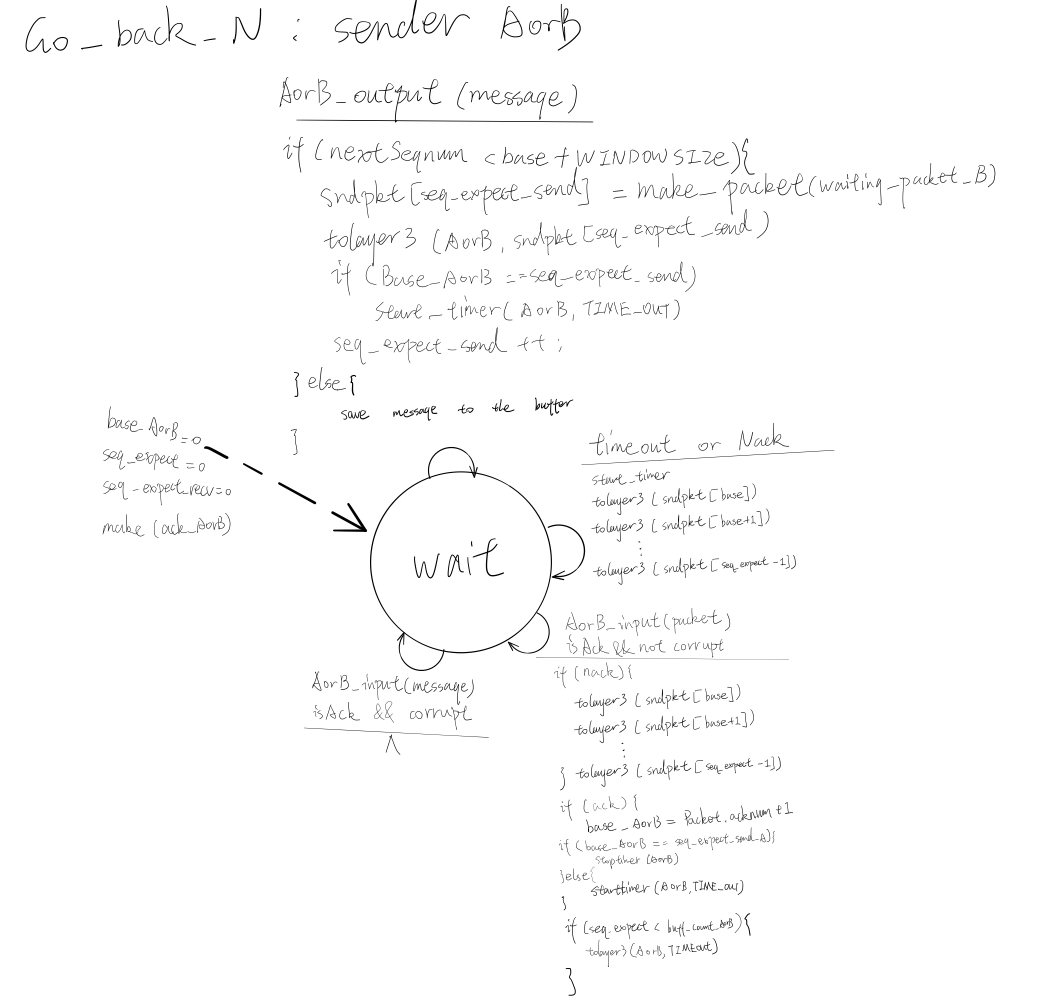 Go_back_N : sender AorB
AorB_output (message)
if (nextSeqnum < base + WINDOWSIZE){
sndpkt [seq_expect_send] = make_packet(waiting_packet_B)
tolayer3 (AorB, sndpkt [seq_expect_send)
if (Base_AorB ==seq_expect_send)
start_timer( AorB, TIME_OUT)
seq_expect_send ++ ;
} else {
save message to the buffer
}
base_AorB=0
seq_expect=0
seq-expect_recv=0
make (ack_AorB)
wait
timeout or Nack
start_timer
tolayer3 ( sndpkt [base])
tolayer3 ( sndpkt [base+1])
⋮
tolayer3 ( sndpkt [ seq_expect -1])
AorB_input(packet)
isAck && not corrupt
if (nack){
tolayer3 ( sndpkt [base])
tolayer3 ( sndpkt [base+1])
⋮
} tolayer3 ( sndpkt [seq_expect -1])
if (ack) {
base_AorB = Packet.acknum+1
if (base_AorB == seq_expect_send_A){
stoptimer (AorB)
}else{
starttimer (AorB,TIME_out)
}
if (seq_expect < buff_count_AorB){
tolayer3 (AorB, TIMEout)
}
AorB_input(message)
isAck && corrupt
Λ